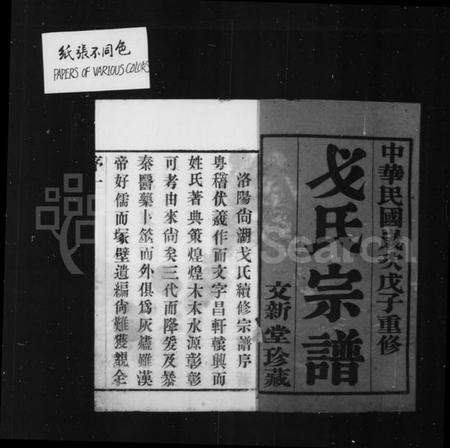 紙張不同色
PAPERS OF VARIOUS COLORS
中華民國歲次戊子重修
戈氏宗譜
文新堂珍藏
洛陽尚湖戈氏續修宗譜序
粵稽伏羲作而文字昌軒轅興而
姓氏著典策煌煌木本水源彰彰
可考由來尚矣三代而降爰及暴
秦醫藥卜筮而外俱為灰燼雖漢
帝好儒而塚壁遺編尚難獲覩全
序
一